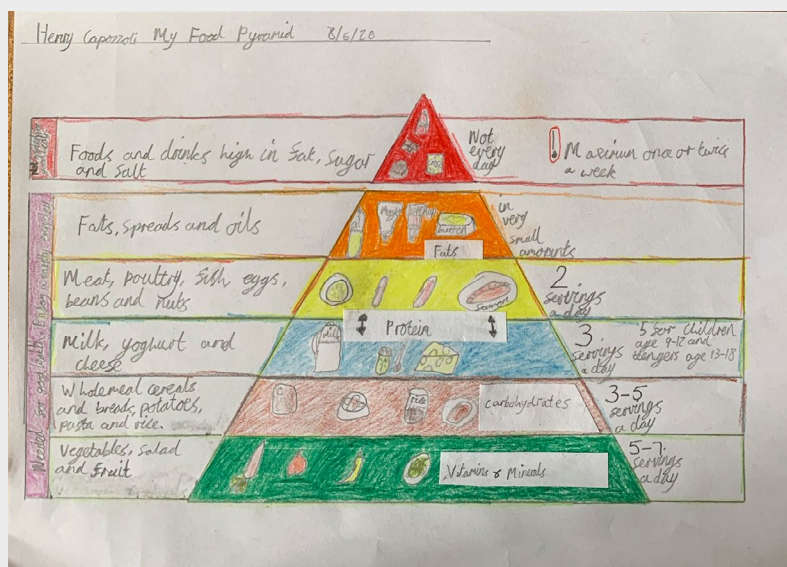 Henry Capozzoli My Food Pyramid 8/6/20
Foods and drinks high in fat, sugar
and salt
Not
every
day
! Maximum once or twice
a week
Fats, spreads and oils
Mayo
Ketchup
butter
Fats
in
very
small
amounts
Meat, poultry, fish, eggs,
beans and nuts
2
servings
a day
Protein
Milk, yoghurt and
cheese
milk
3
servings
a day
5 for children
age 9-12 and
age 13-18
Wholemeal cereals
and breads, potatoes,
pasta and rice.
carbohydrates
3-5
servings
a day
Vegetables, salad
and fruit
Vitamins & Minerals
5-7
servings
a day
Needed for good health.